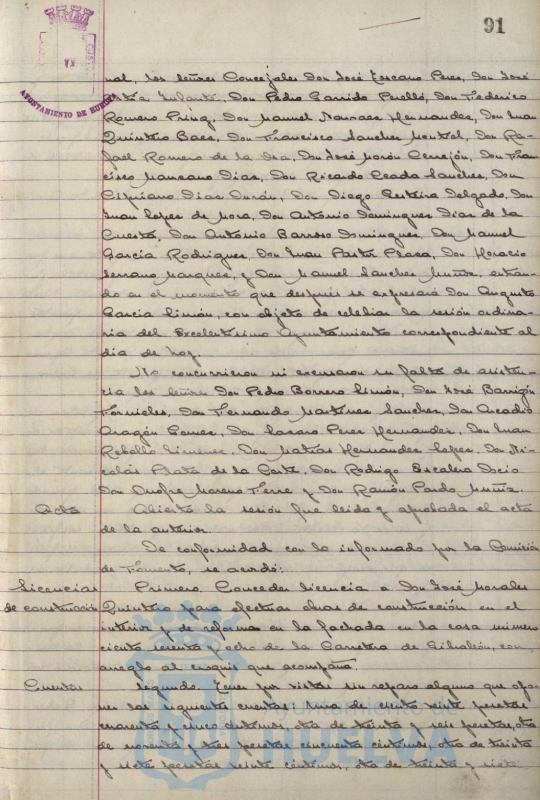 91
AYUNTAMIENTO DE HUELVA
nal, los señores Concejales Don José Toscano Perez, Don José
Infante, Don Pedro Garrido Perelló, Don Federico
Romero Don Manuel Narvaez Hernandez, Don Juan
Quintero Baez, Don Francisco Sanchez Don Ra-
fael Romero de la Osa, Don José Morón Cerejón, Don Fran-
cisco Manzano Diaz, Don Ricardo Sanchez, Don
Cipriano Diaz Durán, Don Diego Delgado, Don
Juan Lopez de Mora, Don Antonio Dominguez Diaz de la
Cuesta, Don Antonio Barroso Dominguez, Don Manuel
Garcia Rodriguez, Don Juan Pastor Plaza, Don Horacio
Serrano Marquez, y Don Manuel Sanchez Muñoz, entran-
do en el momento que después se expresará Don Augusto
Garcia Limón, con objeto de celebrar la sesión ordina-
ria del Excelentísimo Ayuntamiento correspondiente al
dia de hoy.
No concurrieron ni excusaron su falta de asisten-
cia los señores Don Pedro Borrero Limón, Don José Barrigón
Fornieles, Don Fernando Martinez Sanchez, Don Arcadio
Aragón Gomez, Don Lazaro Perez Hernandez, Don Juan
Rebollo Jimenez, Don Matias Hernandez Lopez, Don Ni-
colás de la Corte, Don Rodrigo Escalera
Don Onofre Moreno y Don Ramón Pardo Muñiz.
Acta Abierta la sesión fue leida y aprobada el acta
de la anterior.
De conformidad con lo informado por la Comisión
de Fomento, se acordó:
Licencias Primero. Conceder licencia a Don José Morales
de construcción Quintero para efectuar obras de construcción en el
interior y de reforma en la fachada en la casa número
ciento y ocho de la Carretera de Gibraleón, con
arreglo al croquis que acompaña.
Cuentas Segundo. Tener por vistas sin reparo alguno que opo-
ner las siguientes cuentas: Una de ciento siete pesetas
cuarenta y cinco centimos, otra de treinta y seis pesetas, otra
de noventa y tres pesetas cincuenta centimos, otra de treinta
y siete pesetas veinte centimos, otra de treinta y siete
Ayuntamiento de
HUELVA